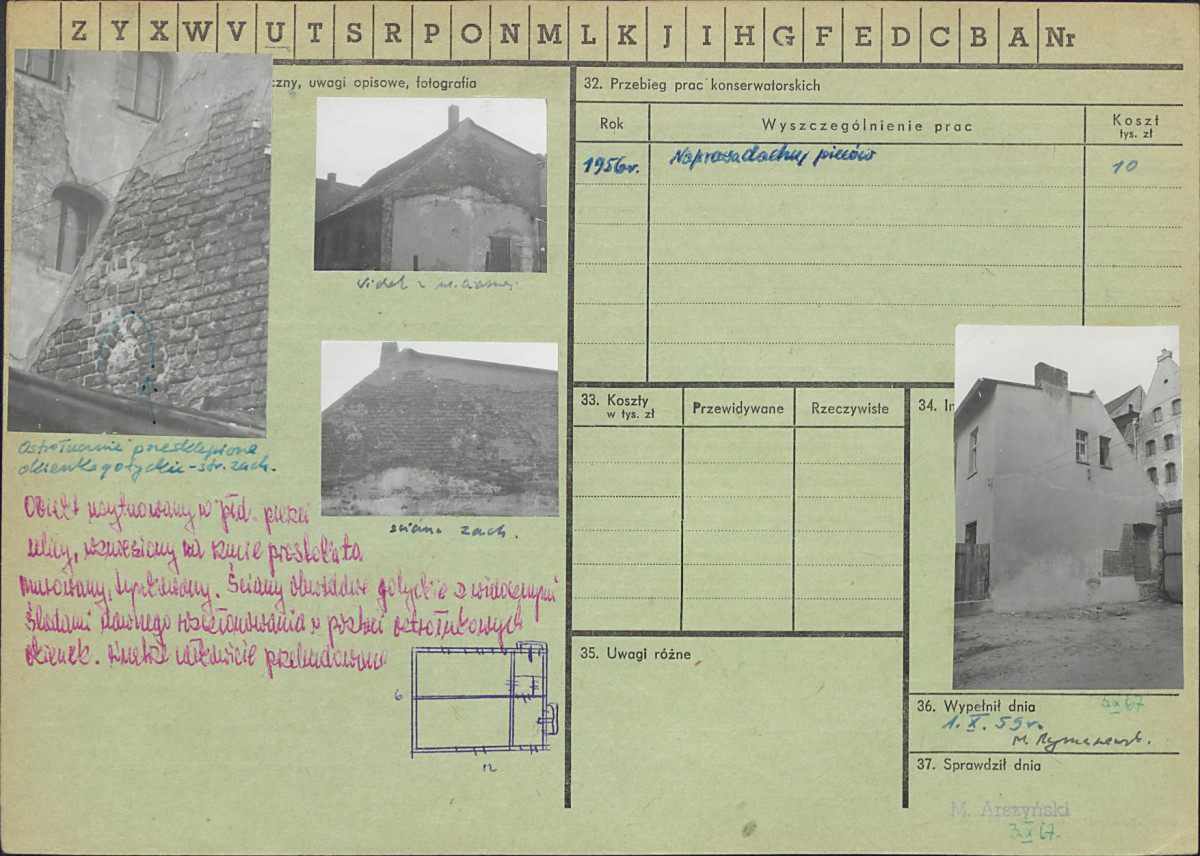 Z Y X W V U T S R P O N M L K J I H G F E D C B A Nr
czny, uwagi opisowe, fotografia
Widok z ul.
Ostrołucznie przesklepione
okienko gotyckie - str. zach.
ściana zach.
Obiekt usytuowany w płd. pierzei
ulicy, wzniesiony na rzucie prostokąta
murowany, tynkowany. Ściany obwodowe gotyckie z widocznymi
śladami dawnego rozczłonkowania w postaci ostrołukowych
okienek. Wnętrze całkowicie przebudowane
6
12
32. Przebieg prac konserwatorskich
Rok
Wyszczególnienie prac
Koszt
tys. zł
1956 r.
Naprawa dachu, pieców
10
33. Koszty
w tys. zł
Przewidywane
Rzeczywiste
34. In
35. Uwagi różne
36. Wypełnił dnia
3 X 67
1. X. 59 r.
M.
37. Sprawdził dnia
M. Arszyński
3 X 67.